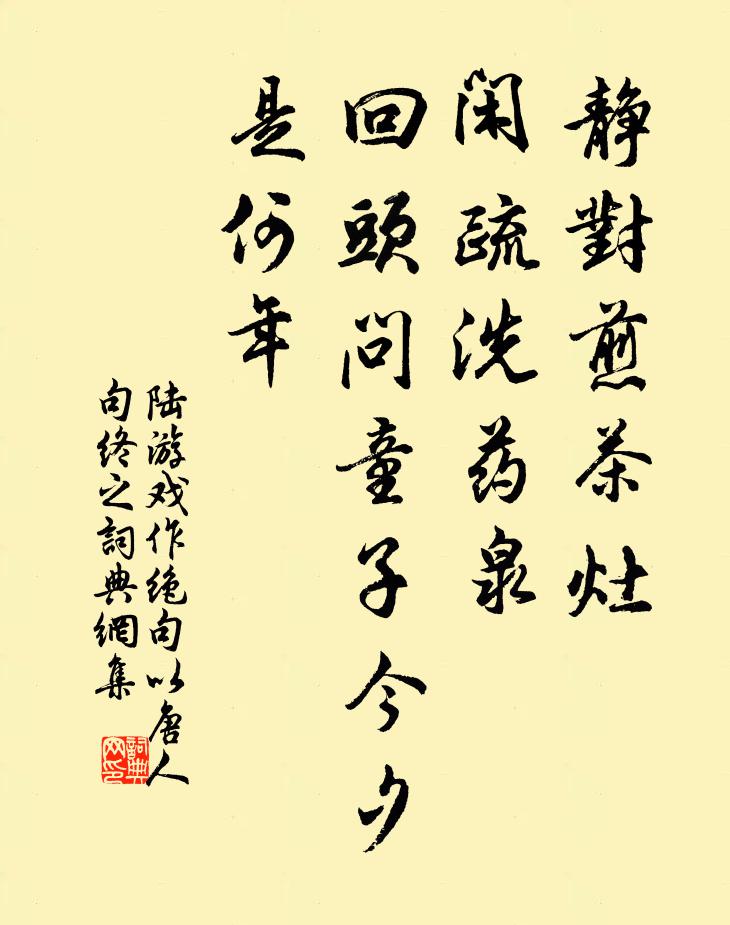 静對煎茶灶
闲疏洗药泉
回頭問童子今夕
是何年
陆游戏作绝句以唐人
句终之詞典網集
詞典网印